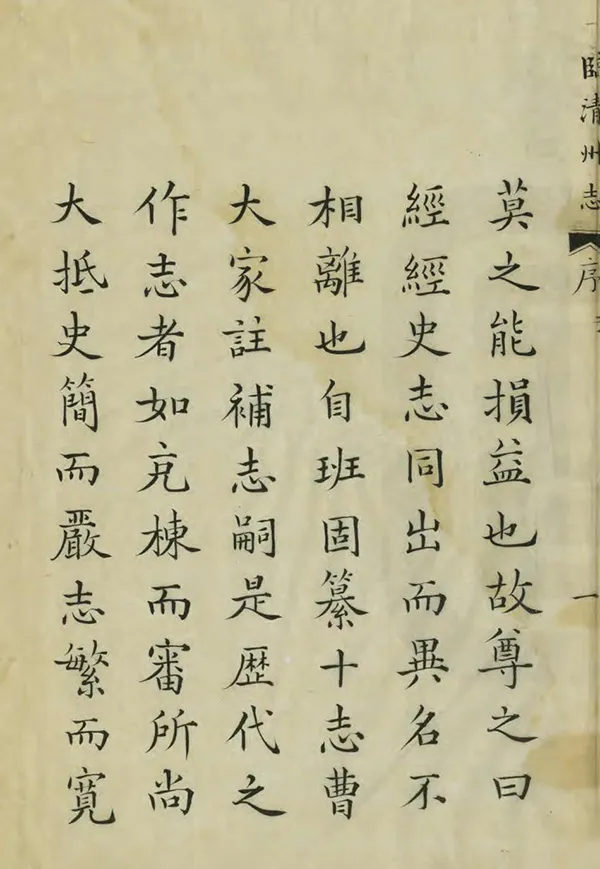 臨清州志
序
一
莫之能損益也故尊之曰
經經史志同出而異名不
相離也自班固纂十志曹
大家註補志嗣是歷代之
作志者如充棟而審所尚
大抵史簡而嚴志繁而寬